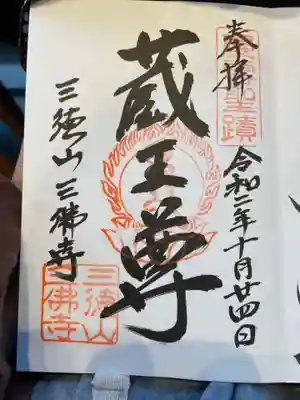 奉拝
令和二年十月廿四日
蔵王尊
三徳山三佛寺
三徳山
三佛寺